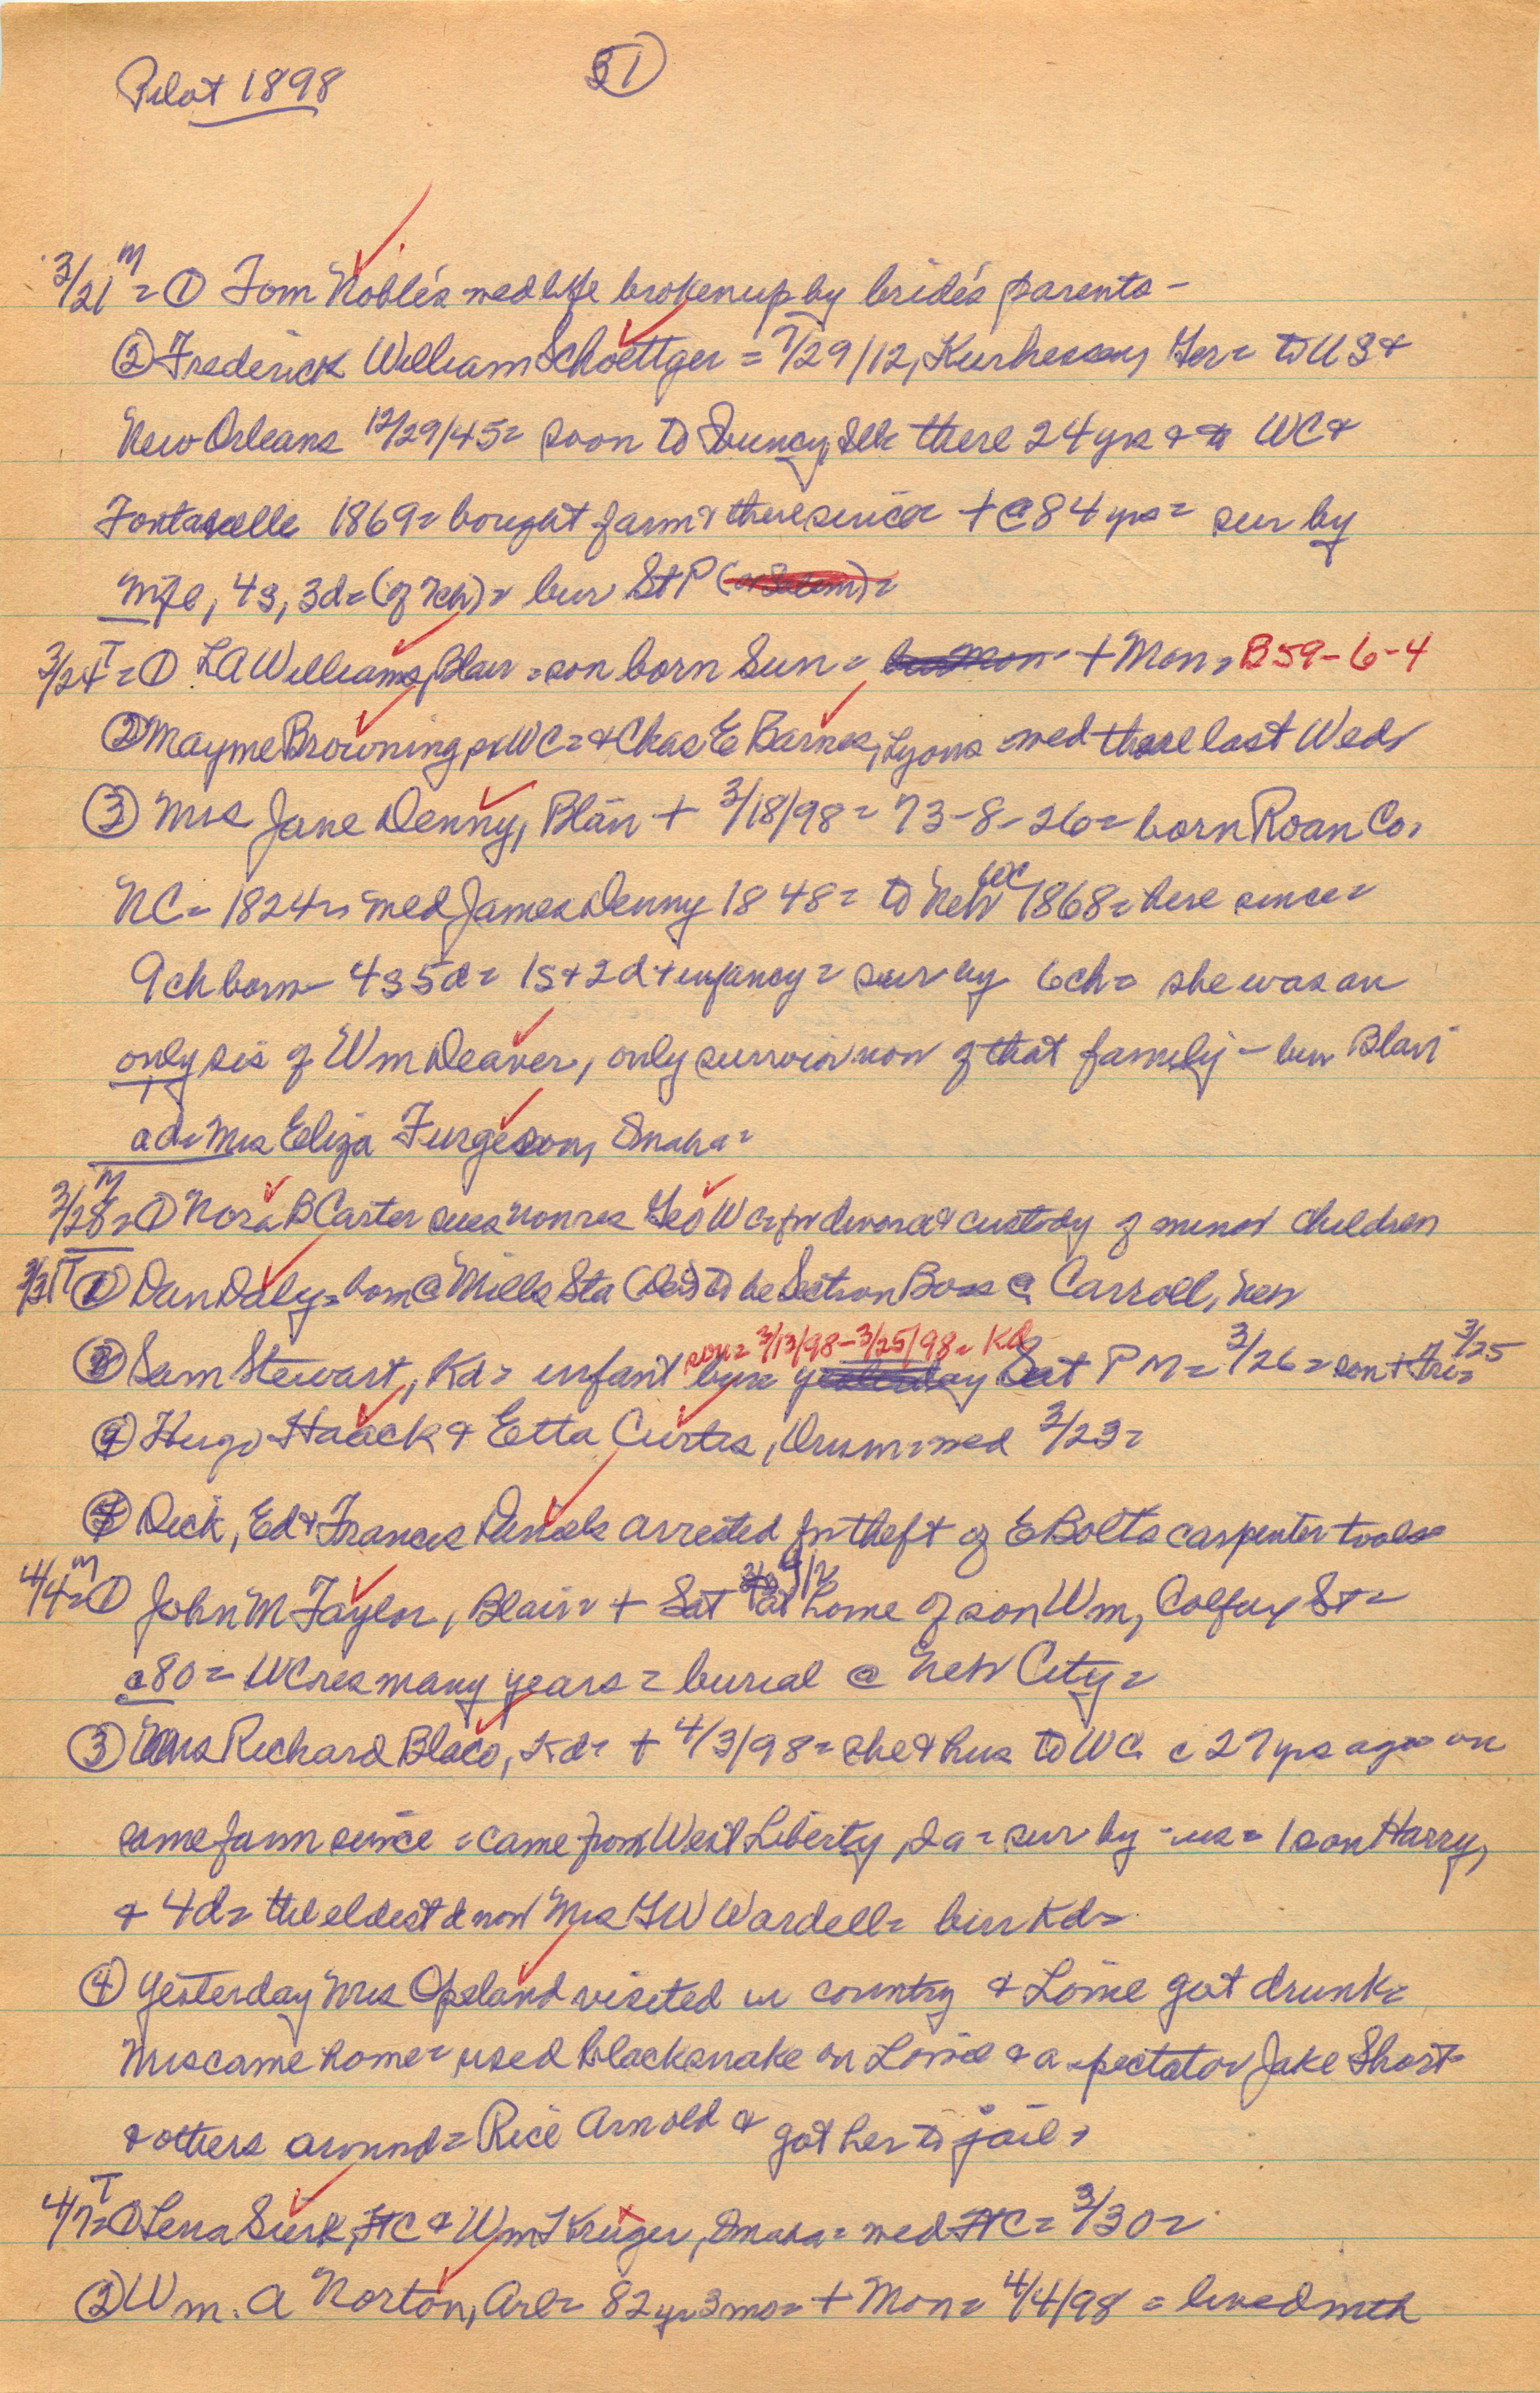 Pilot 1898
31
3/21 M = ① Tom Noble's wed life broken up by bride's parents -
② Frederick William Schoettger = 7/29/12, Kurhessen, Ger = to US &
New Orleans 12/29/45 = soon to Quincy, Ills there 24 yrs & to WC &
Fontanelle 1869 = bought farm & there since + @ 84 yrs = sur by
wife, 4s, 3d = (of 7ch) = bur St P
3/24 T = ① LA Williams, Blair = son born Sun = + Mon = B 59-6-4
② Mayme Browning, WC = & Chas E Barnes, Lyons wed there last Wed
③ Mrs Jane Denny, Blair + 3/18/98 = 73-8-26 = born Roan Co,
NC = 1824 = wed James Denny 1848 = to Neb WC 1868 = here since =
9 ch born - 4s 5d = 1s + 2d + infancy = sur by 6ch = she was an
only sis of Wm Deaver, only survivor now of that family - bur Blair
ad = Mrs Eliza Furgeson, Omaha =
3/28 M = ① Nora B Carter sues nonres Geo W C for divorce & custody of minor children
3/31 T ① Dan Daly = boss @ Mills Sta to be Section Boss @ Carroll, Neb
② Sam Stewart, Kd = infant son = 3/13/98 - 3/25/98 = Kd bur yesterday Sat PM = 3/26 = son + Fri = 3/25
Hugo Haack & Etta Curtis, Drum = wed 3/23 =
Dick, Ed & Frances Daniels arrested for theft of E Bolts carpenter tools =
4/4 M = ① John M Taylor, Blair = + Sat 4/2 at home of son Wm, Colfax St =
@ 80 = WC res many years = burial @ Neb City =
③ Mrs Richard Blaco, Kd = + 4/3/98 = she & hus to WC c 27 yrs ago = on
same farm since = came from West Liberty, Ia = sur by hus = 1 son Harry,
& 4d = the eldest d now Mrs GW Wardell = bur Kd =
④ Yesterday Mrs Opeland visited in country & Lonie got drunk =
Mrs came home = used blacksnake on Lonie & a spectator Jake Short
& others around = Rice Arnold & got her to jail =
4/7 T = ① Lena Sierk, FtC & Wm L Kruger, Omaha = wed FtC = 3/30 =
② Wm. A Norton, Arl = 82 yr 3 mo = + Mon = 4/4/98 = lived with